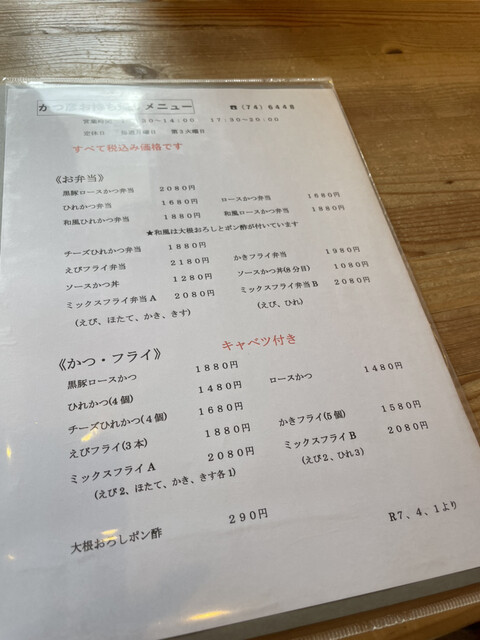 かつ彦お持ち帰りメニュー ☎(74)6448
営業時間 11:30~14:00 17:30~20:00
定休日 毎週月曜日 第3火曜日
すべて税込み価格です
《お弁当》
黒豚ロースかつ弁当 2080円
ひれかつ弁当 1680円 ロースかつ弁当 1680円
和風ひれかつ弁当 1880円 和風ロースかつ弁当 1880円
★和風は大根おろしとポン酢が付いています
チーズひれかつ弁当 1880円
えびフライ弁当 2180円 かきフライ弁当 1980円
ソースかつ丼 1280円 ソースかつ丼(8分目) 1080円
ミックスフライ弁当A 2080円 ミックスフライ弁当B 2080円
(えび、ほたて、かき、きす) (えび、ひれ)
《かつ・フライ》 キャベツ付き
黒豚ロースかつ 1880円
ひれかつ(4個) 1480円 ロースかつ 1480円
チーズひれかつ(4個) 1680円
えびフライ(3本) 1880円 かきフライ(5個) 1580円
ミックスフライA 2080円 ミックスフライB 2080円
(えび2、ほたて、かき、きす各1) (えび2、ひれ3)
大根おろしポン酢 290円
R7、4、1より